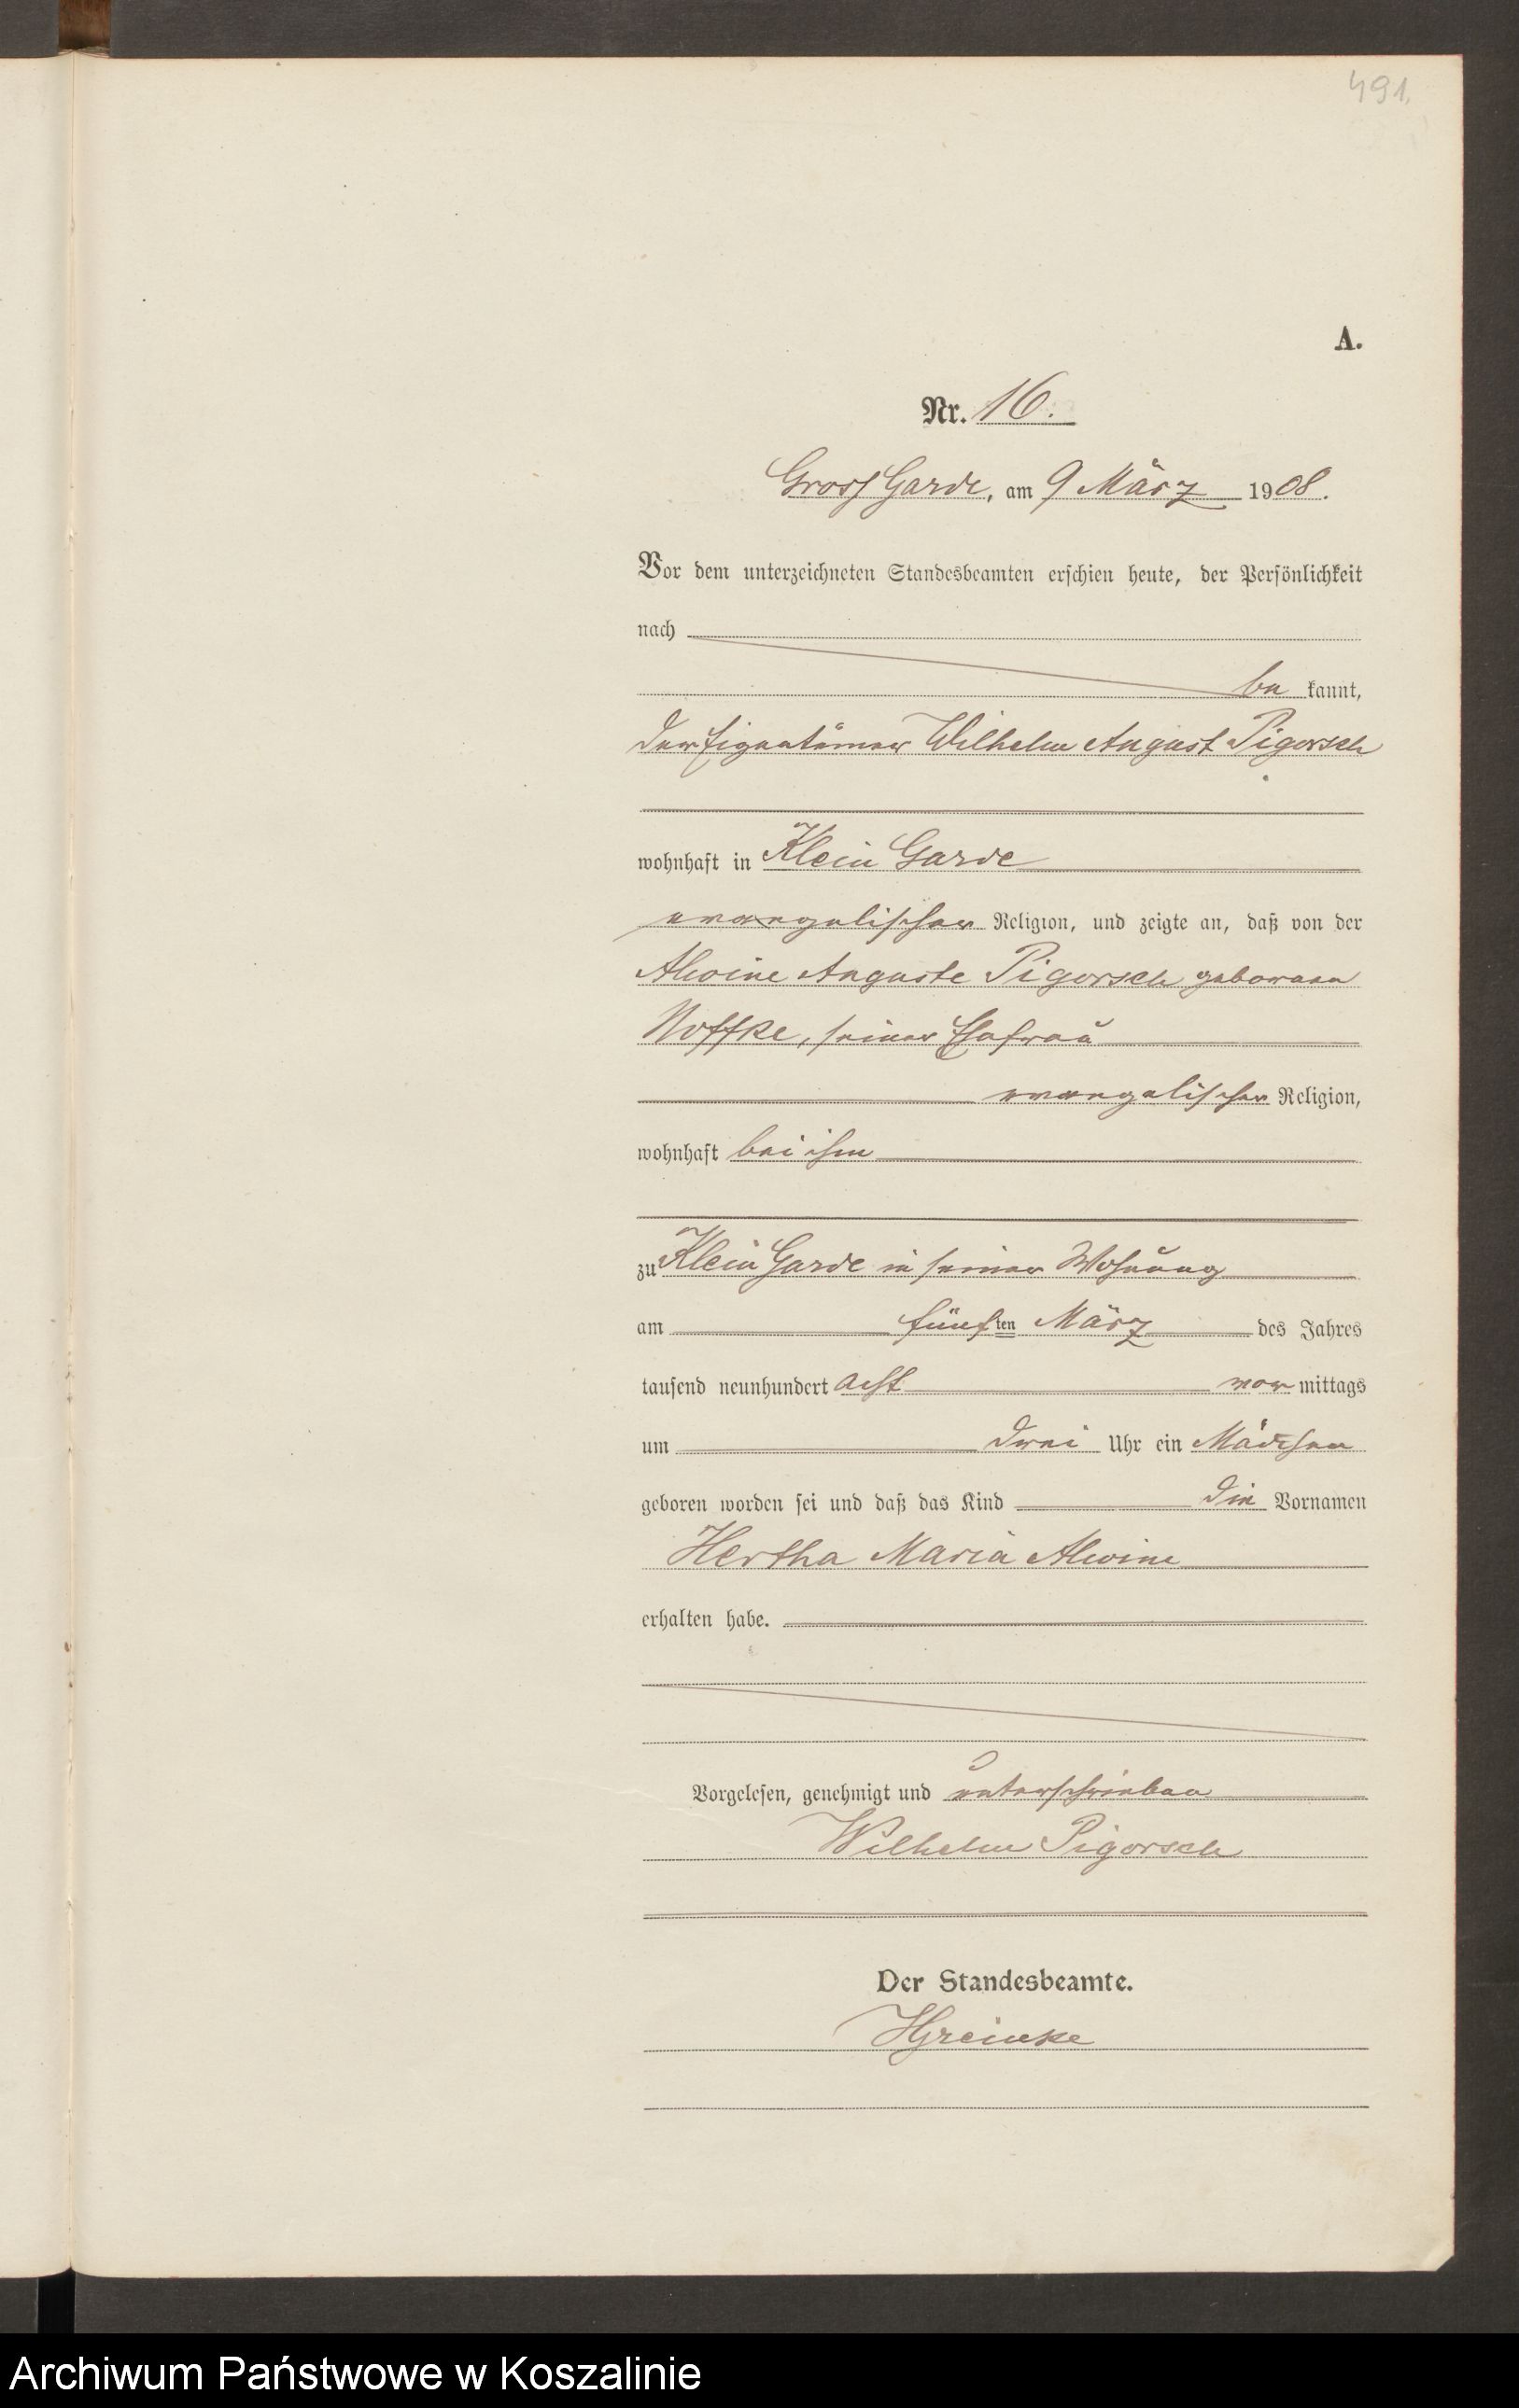 491.
A.
Nr. 16.
Gross Garde, am 9 März 1908.
Vor dem unterzeichneten Standesbeamten erschien heute, der Persönlichkeit
nach
be kannt,
der Eigentümer Wilhelm August Pigorsch
wohnhaft in Klein Garde
evangelischer Religion, und zeigte an, daß von der
Alwine Auguste Pigorsch geborenen
Noffke, seiner Ehefrau
evangelischer Religion,
wohnhaft bei ihm
zu Klein Garde in seiner Wohnung
am fünften März des Jahres
tausend neunhundert acht vor mittags
um drei Uhr ein Mädchen
geboren worden sei und daß das Kind die Vornamen
Hertha Maria Alwine
erhalten habe.
Vorgelesen, genehmigt und unterschrieben
Wilhelm Pigorsch
Der Standesbeamte.
Archiwum Państwowe w Koszalinie